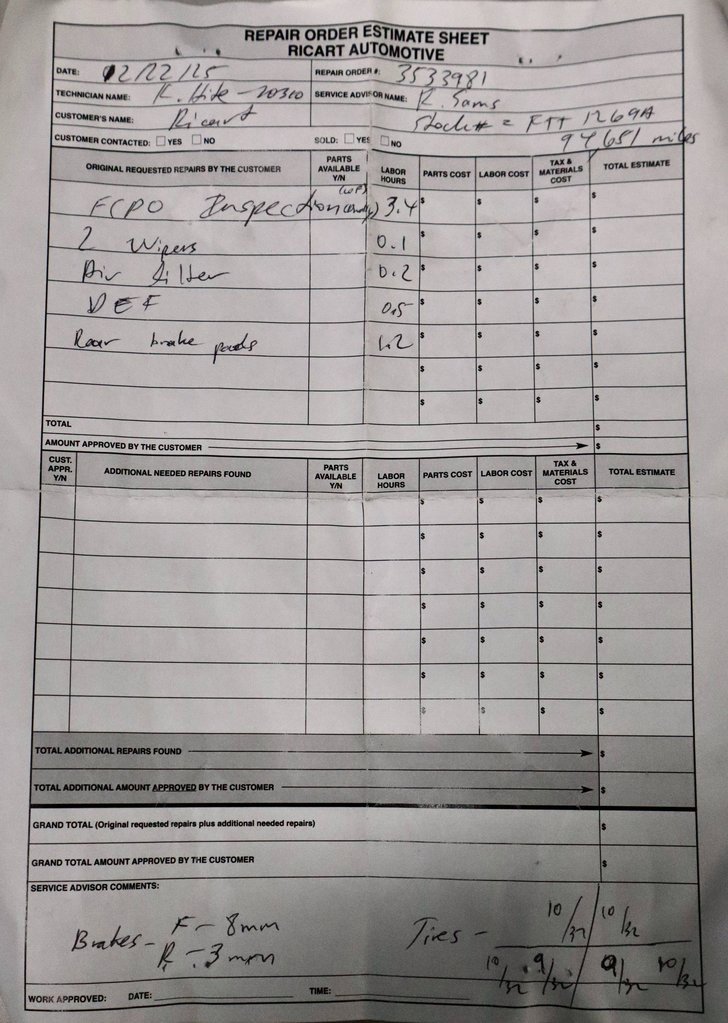 REPAIR ORDER ESTIMATE SHEET
RICART AUTOMOTIVE
DATE: 02/22/25 REPAIR ORDER #: 3533981
TECHNICIAN NAME: K. Hite - 20310 SERVICE ADVISOR NAME: R. Sams
CUSTOMER'S NAME: Ricart Stock # = FTT 1269A
CUSTOMER CONTACTED: YES NO SOLD: YES NO 94,651 miles
ORIGINAL REQUESTED REPAIRS BY THE CUSTOMER PARTS AVAILABLE Y/N LABOR HOURS PARTS COST LABOR COST TAX & MATERIALS COST TOTAL ESTIMATE
FCPO Inspection 3.4 $ $ $ $
2 Wipers 0.1 $ $ $ $
Air filter 0.2 $ $ $ $
DEF 0.5 $ $ $ $
Rear brake pads 1.2 $ $ $ $
$ $ $ $
$ $ $ $
TOTAL $
AMOUNT APPROVED BY THE CUSTOMER $
CUST. APPR. Y/N ADDITIONAL NEEDED REPAIRS FOUND PARTS AVAILABLE Y/N LABOR HOURS PARTS COST LABOR COST TAX & MATERIALS COST TOTAL ESTIMATE
$ $ $ $
$ $ $ $
$ $ $ $
$ $ $ $
$ $ $ $
$ $ $ $
$ $ $ $
TOTAL ADDITIONAL REPAIRS FOUND $
TOTAL ADDITIONAL AMOUNT APPROVED BY THE CUSTOMER $
GRAND TOTAL (Original requested repairs plus additional needed repairs) $
GRAND TOTAL AMOUNT APPROVED BY THE CUSTOMER $
SERVICE ADVISOR COMMENTS:
Brakes - F - 8mm Tires - 10/32 10/32
R - 3mm 10/32 9/32 9/32 10/32
WORK APPROVED: DATE: TIME: